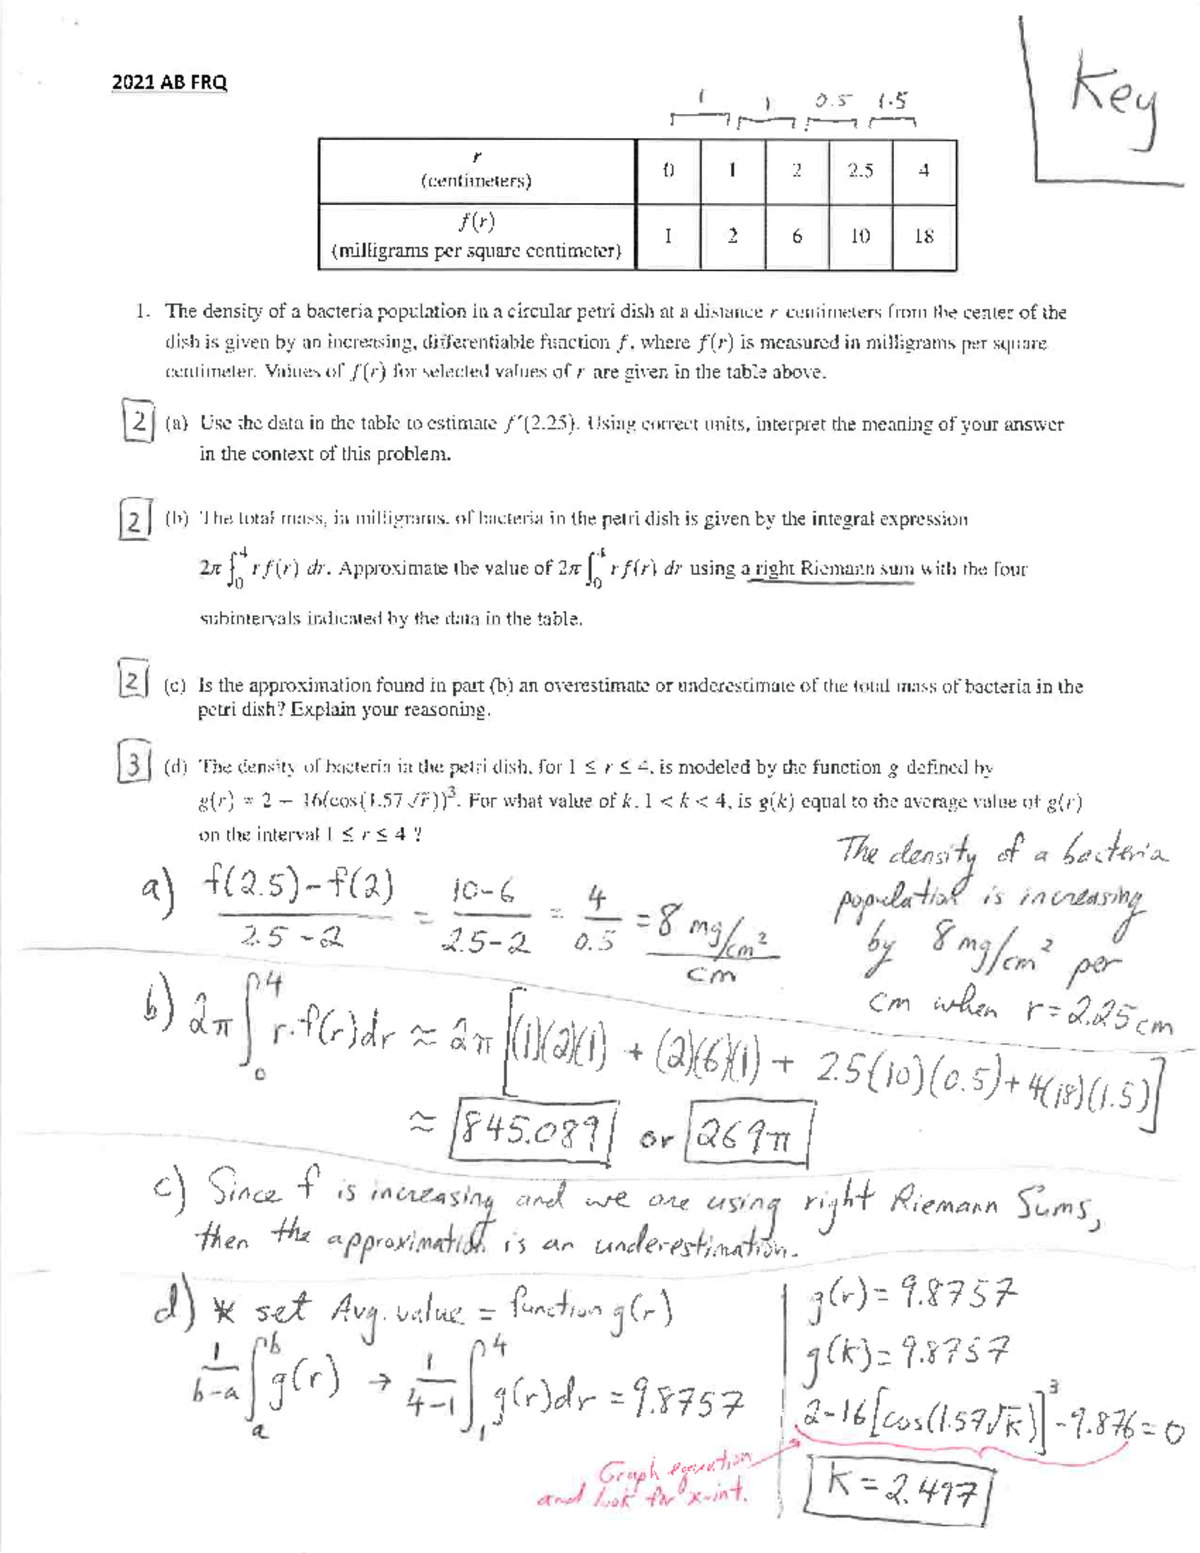 2021 AB FRQ
Key
1 1 0.5 1.5
r (centimeters) 0 1 2 2.5 4
f(r) (milligrams per square centimeter) 1 2 6 10 18
1. The density of a bacteria population in a circular petri dish at a distance r centimeters from the center of the
dish is given by an increasing, differentiable function f, where f(r) is measured in milligrams per square
centimeter. Values of f(r) for selected values of r are given in the table above.
2 (a) Use the data in the table to estimate f′(2.25). Using correct units, interpret the meaning of your answer
in the context of this problem.
2 (b) The total mass, in milligrams, of bacteria in the petri dish is given by the integral expression
2π ∫₀⁴ r f(r) dr. Approximate the value of 2π ∫₀⁴ r f(r) dr using a right Riemann sum with the four
subintervals indicated by the data in the table.
2 (c) Is the approximation found in part (b) an overestimate or underestimate of the total mass of bacteria in the
petri dish? Explain your reasoning.
3 (d) The density of bacteria in the petri dish, for 1 ≤ r ≤ 4, is modeled by the function g defined by
g(r) = 2 − 16(cos(1.57√r))³. For what value of k, 1 < k < 4, is g(k) equal to the average value of g(r)
on the interval 1 ≤ r ≤ 4 ?
a) f(2.5)-f(2) / 2.5-2 = 10-6 / 2.5-2 = 4 / 0.5 = 8 mg/cm² / cm
The density of a bacteria
population is increasing
by 8 mg/cm² per
cm when r=2.25cm
b) 2π ∫₀⁴ r·f(r)dr ≈ 2π [(1)(2)(1) + (2)(6)(1) + 2.5(10)(0.5)+4(18)(1.5)]
≈ 845.089 or 269π
c) Since f is increasing and we are using right Riemann Sums,
then the approximation is an underestimation.
d) * set Avg. value = function g(r)
1/b-a ∫ₐᵇ g(r) → 1/4-1 ∫₁⁴ g(r)dr = 9.8757
g(r)= 9.8757
g(k)= 9.8757
2-16[cos(1.57√k)]³ -9.876=0
Graph equation
and look for x-int.
k=2.497